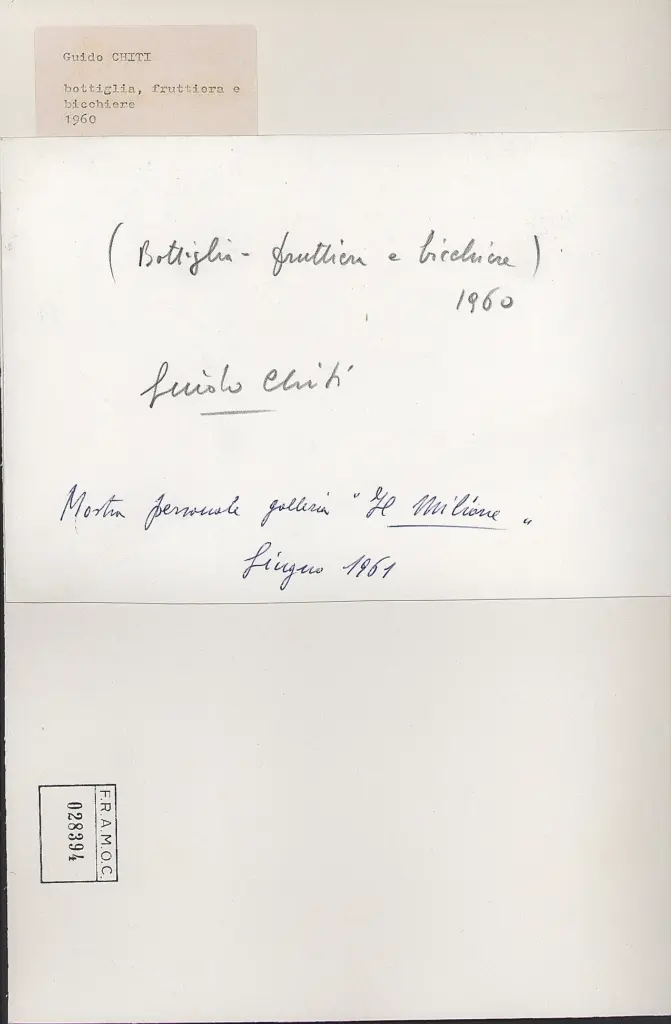 Guido CHITI
bottiglia, fruttiera e
bicchiere
1960
( Bottiglia - fruttiera e bicchiere )
1960
Guido Chiti
Mostra personale galleria "Il Milione„
Giugno 1961
F.R.A.M.O.C.
028394